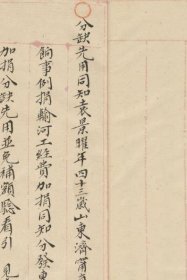 分缺先用同知袁景曜年四十三歲山東濟甯
餉事例捐輸河工經費加捐同知分發東
加捐分缺先用並免補領驗看引 見